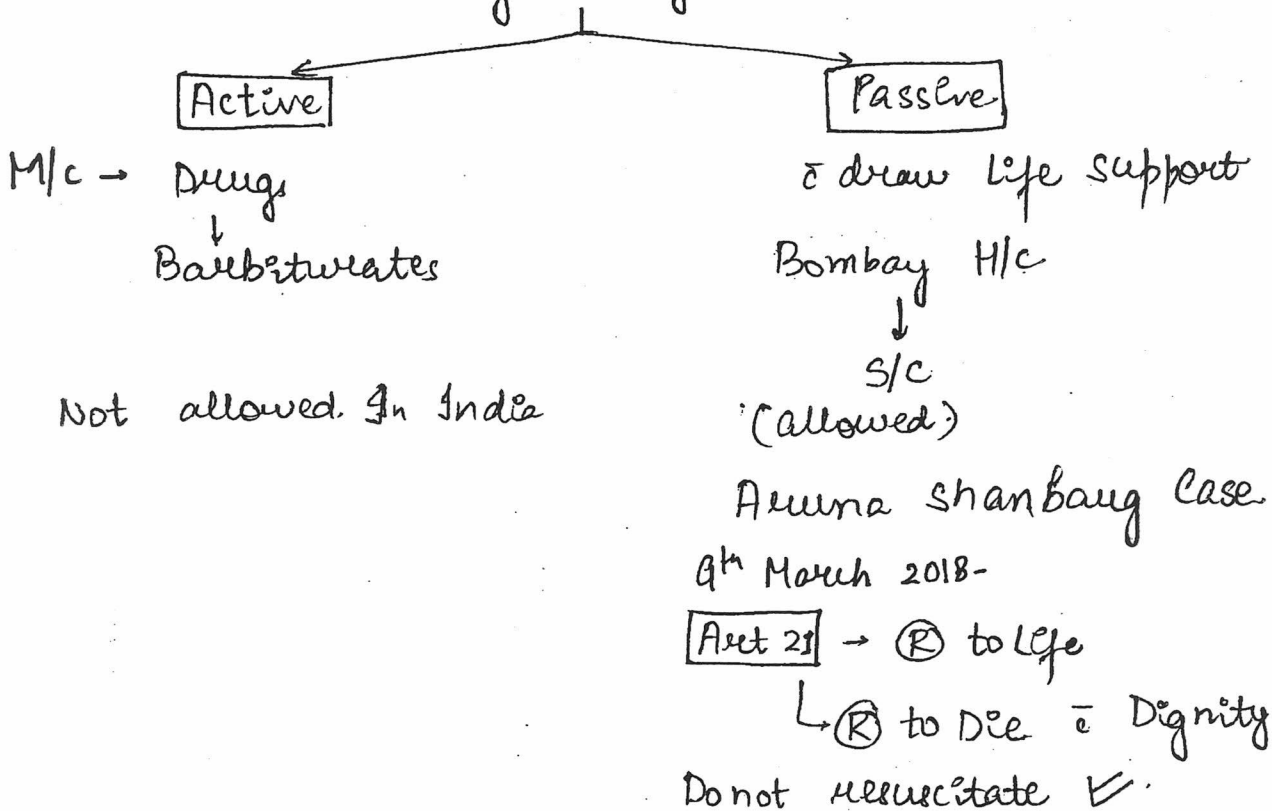 Active
Passive
M/c → Drugs
↓
Barbiturates
Not allowed. In India
c̄ draw Life support
Bombay H/c
↓
S/C
(allowed)
Aruna Shanbaug Case
9th March 2018-
Art 21 → Ⓡ to Life
Ⓡ to Die c̄ Dignity
Do not resuscitate ✓.